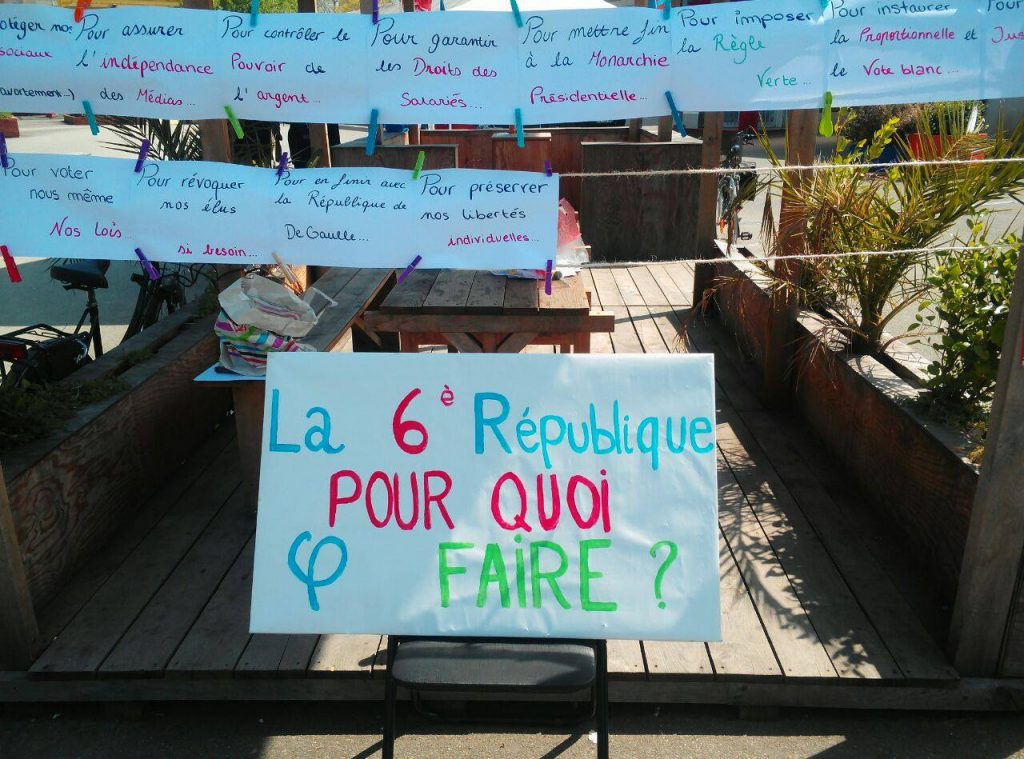 protéger nos
sociaux
(avortement...)
Pour assurer
l'indépendance
des Médias...
Pour contrôler le
Pouvoir de
l'argent...
Pour garantir
les Droits des
Salariés...
Pour mettre fin
à la Monarchie
Présidentielle...
Pour imposer
la Règle
Verte...
Pour instaurer
la Proportionnelle et
le Vote blanc...
Pour
Pour voter
nous même
Nos lois...
Pour révoquer
nos élus
si besoin...
Pour en finir avec
la République de
De Gaulle...
Pour préserver
nos libertés
individuelles...
La 6è République
POUR QUOI
φ FAIRE ?